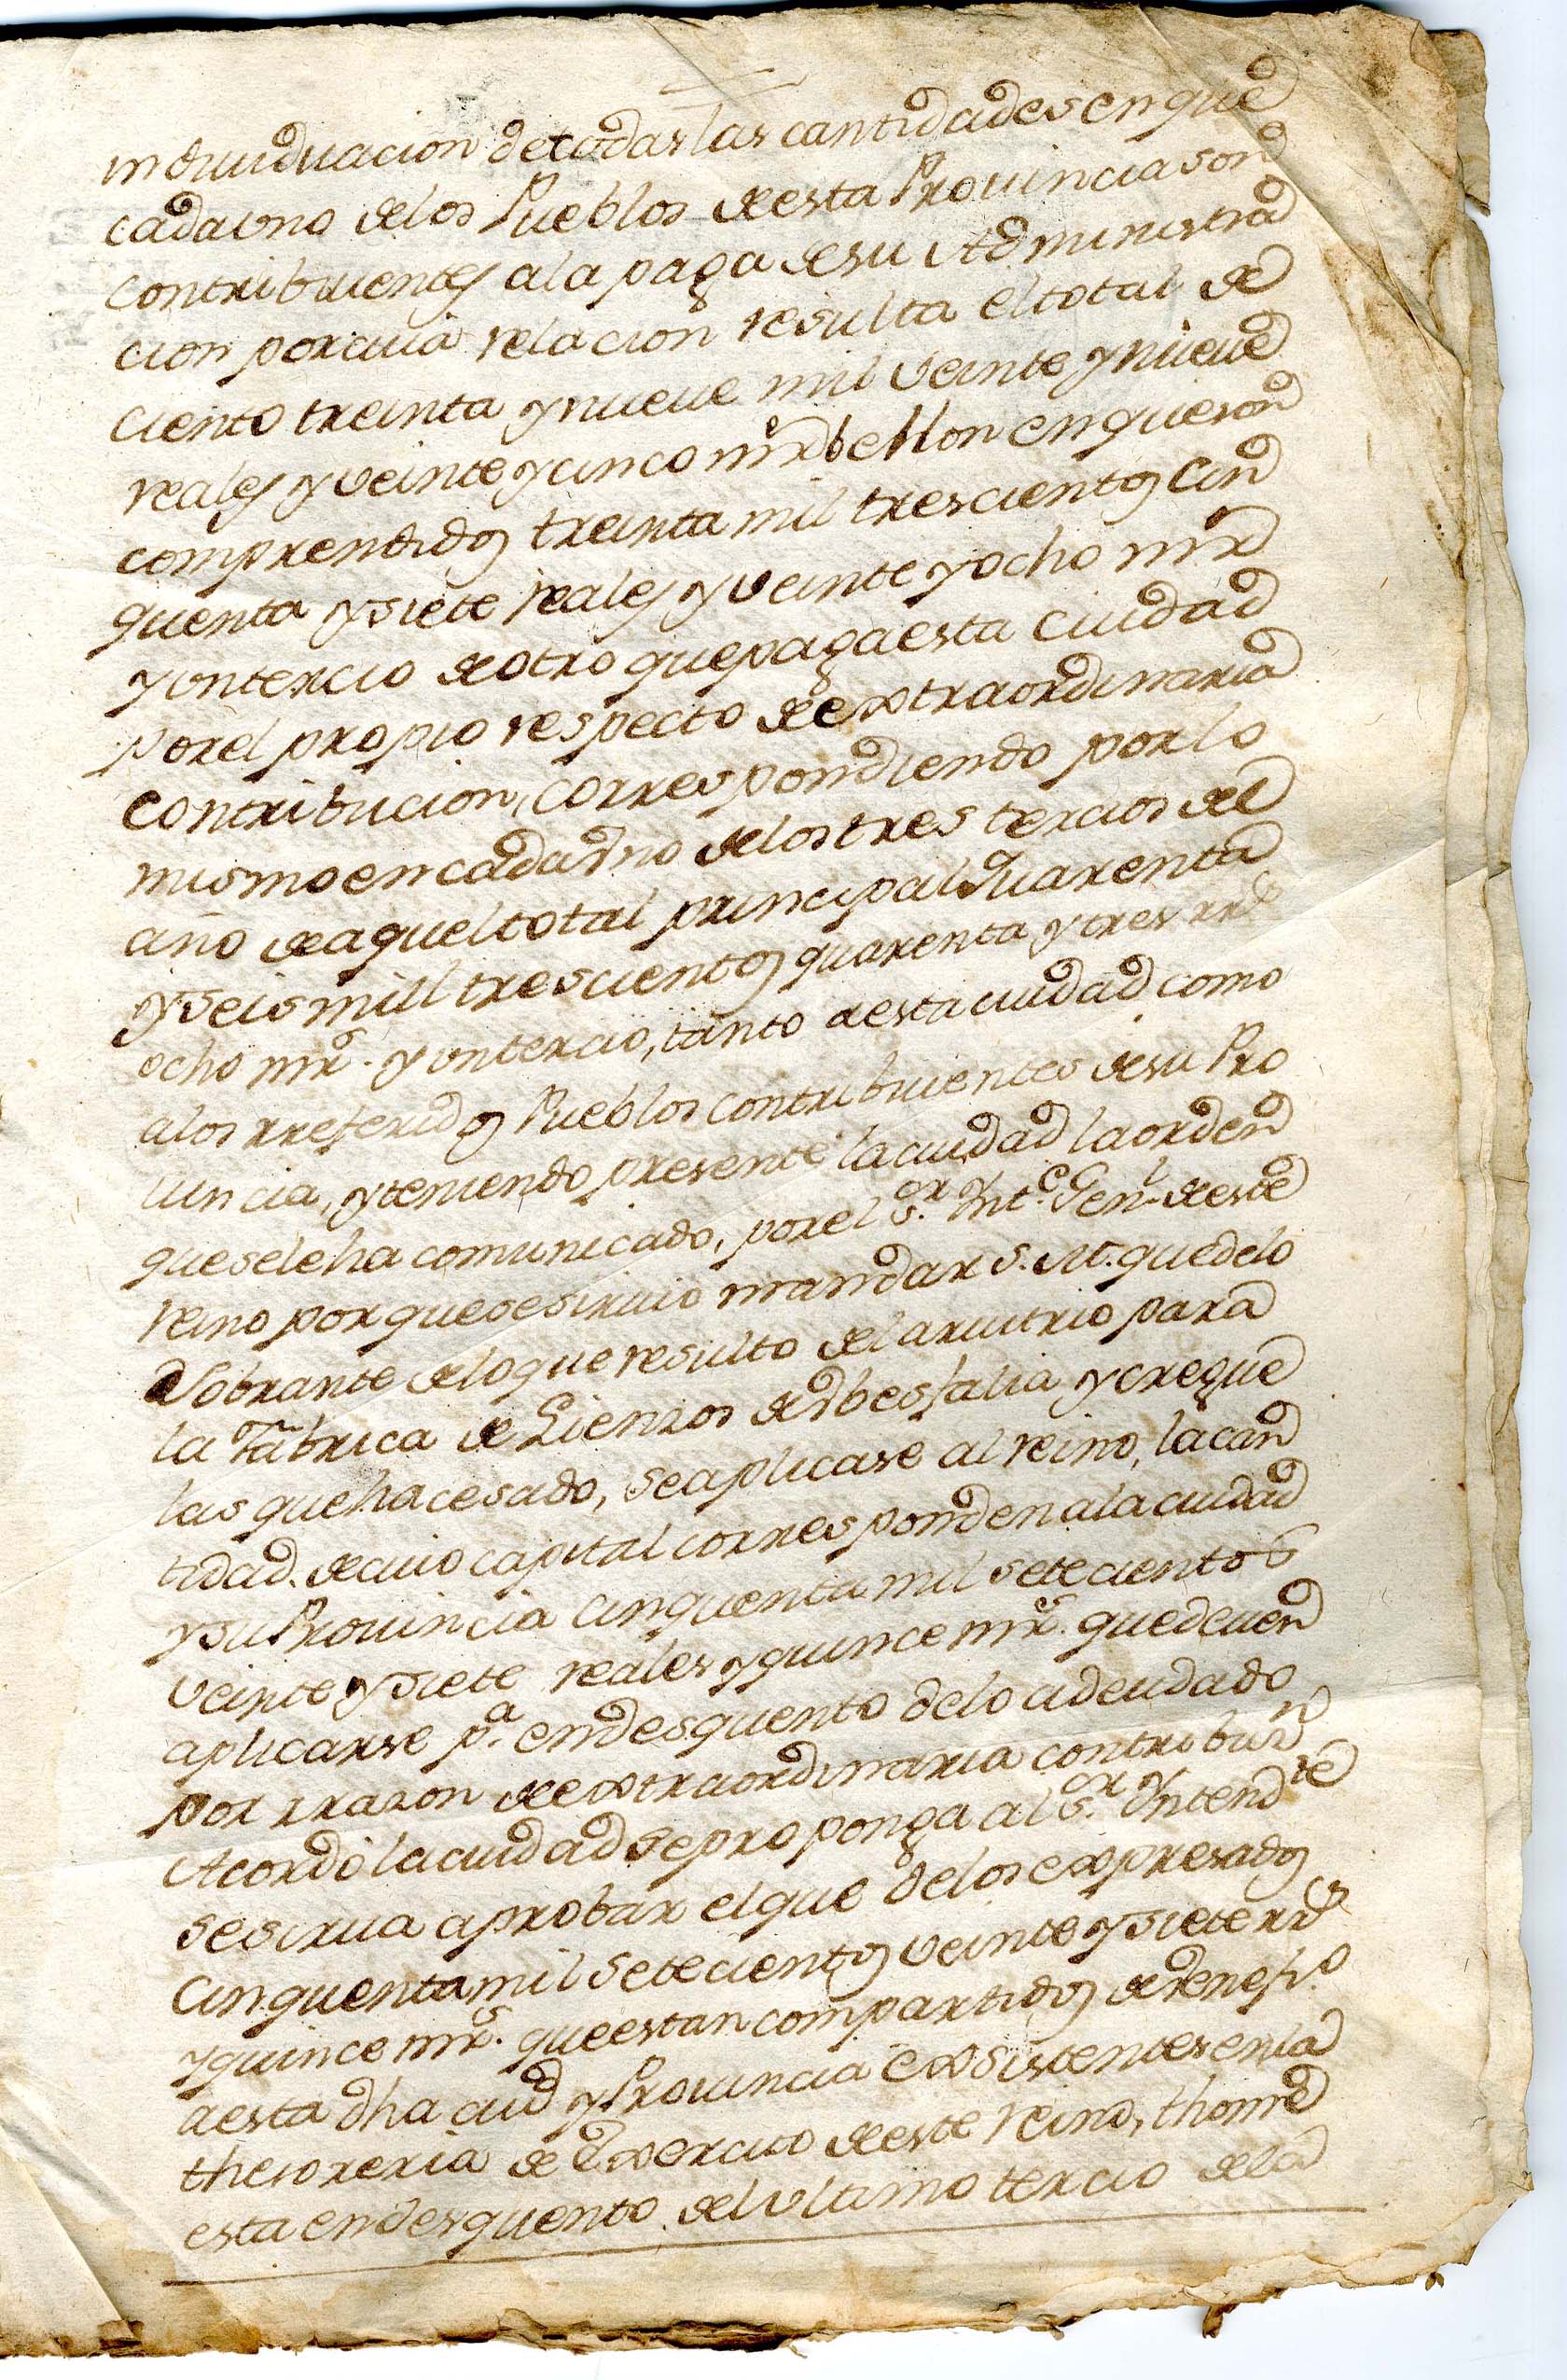 indiuiduacion de todas las cantidades en que
cada vno de los Pueblos de esta Prouincia son
contribuientes a la paga de su Administra
cion por cuia relacion resulta el total de
ciento treinta y nueue mil veinte y nueue
reales y veinte y cinco mrs bellon en que son
comprendidos treinta mil trescientos cin
quenta y siete reales y veinte y ocho mrs
y vn tercio de otro que paga esta ciudad
por el propio respecto de extraordinaria
contribucion, correspondiendo por lo
mismo en cada vno de los tres tercios de
año de aquel total principal quarenta
y seis mill trescientos quarenta y tres rrs
ocho mrs. y vn tercio, tanto a esta ciudad como
a los rreferidos Pueblos contribuientes de su Pro
uincia, y teniendo presente la ciudad la orden
que se le ha comunicado, por el Sr. Yntte. Genl. de este
reino por que se siruio mandar S. M. que de lo
sobrante de lo que resulto del aruitrio para
la Fabrica de Lienzos de Vbesfalia y creque
las que ha cesado, se aplicase al reino, la can
tidad. de cuio capital corresponden a la ciudad
y su Prouincia cinquenta mil setecientos
veinte y siete reales y quince mrs. que deuen
aplicarse pa. en desquento de lo adeudado
por rrazon de extraordinaria contribun
Acordó la ciudad se proponga al Sr. Yntendte
se sirua aprobar el que de los expresados
cinquenta mil setecientos veinte y siete rrs
y quince mrs. que estan compartidos de venefio.
a esta dha ciud y Prouincia existentes en la
thesoreria de Exercito de este reino, thome
esta en desquento del vltimo tercio de la